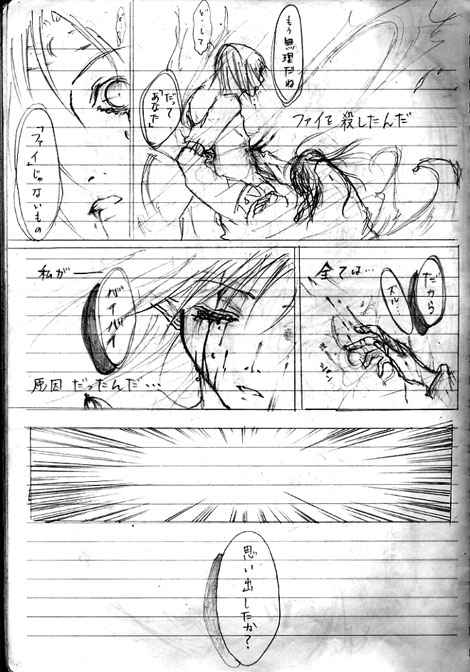 もう無理だね
どうして
だって
あなた
ファイを殺したんだ
「ファイ」
じゃないもの
だから
ズル…
全ては…
バイバイ
私が――
原因だったんだ…
思い出したか?